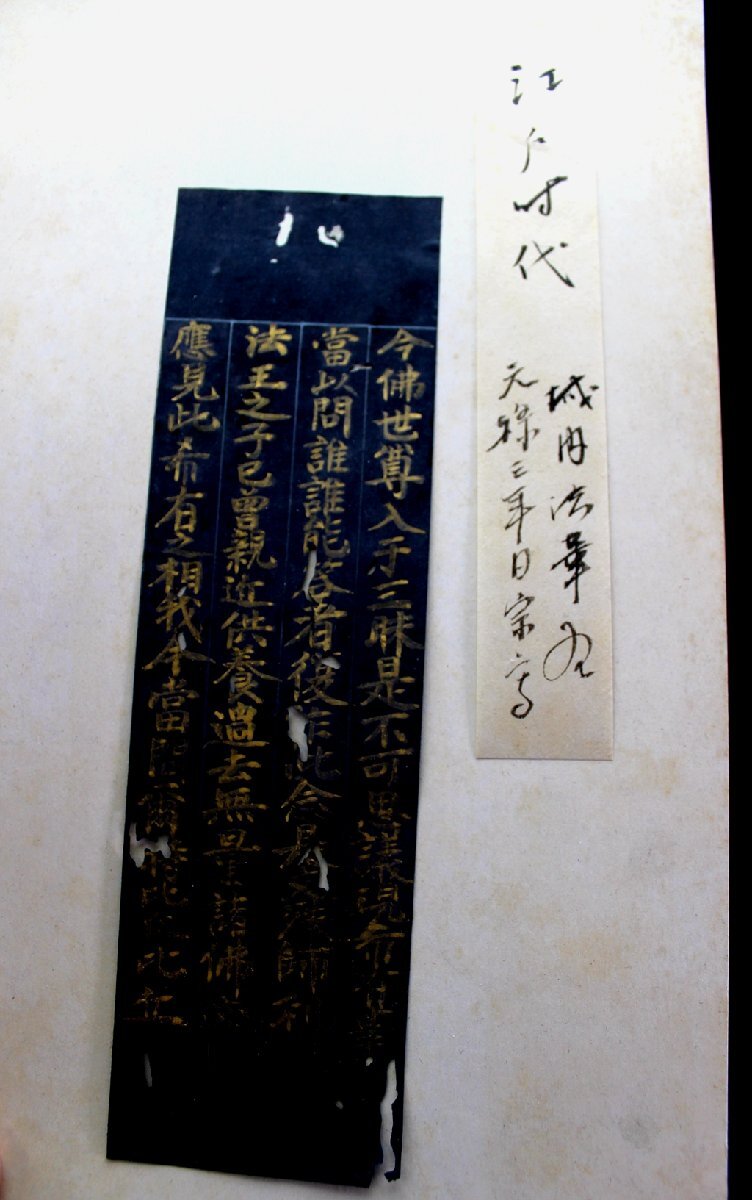 江户时代
城内法華
元禄三年日宗
今佛世尊入于三昧是不可思議現希有事
當以問誰誰能答者復作此念是文殊師利
法王之子已曾親近供養過去無量諸佛必
應見此希有之相我今當問爾時比丘比丘